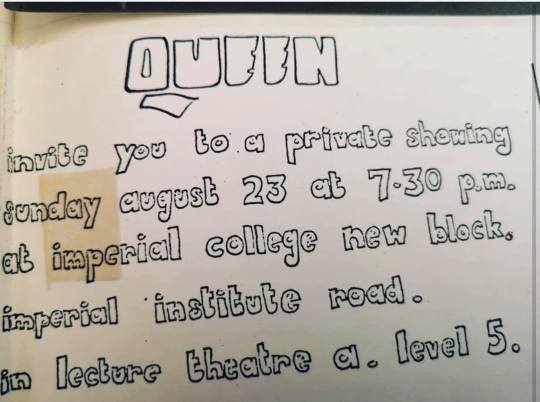 QUEEN
invite you to a private showing
sunday august 23 at 7·30 p.m.
at imperial college new block.
imperial institute road.
in lecture theatre a. level 5.